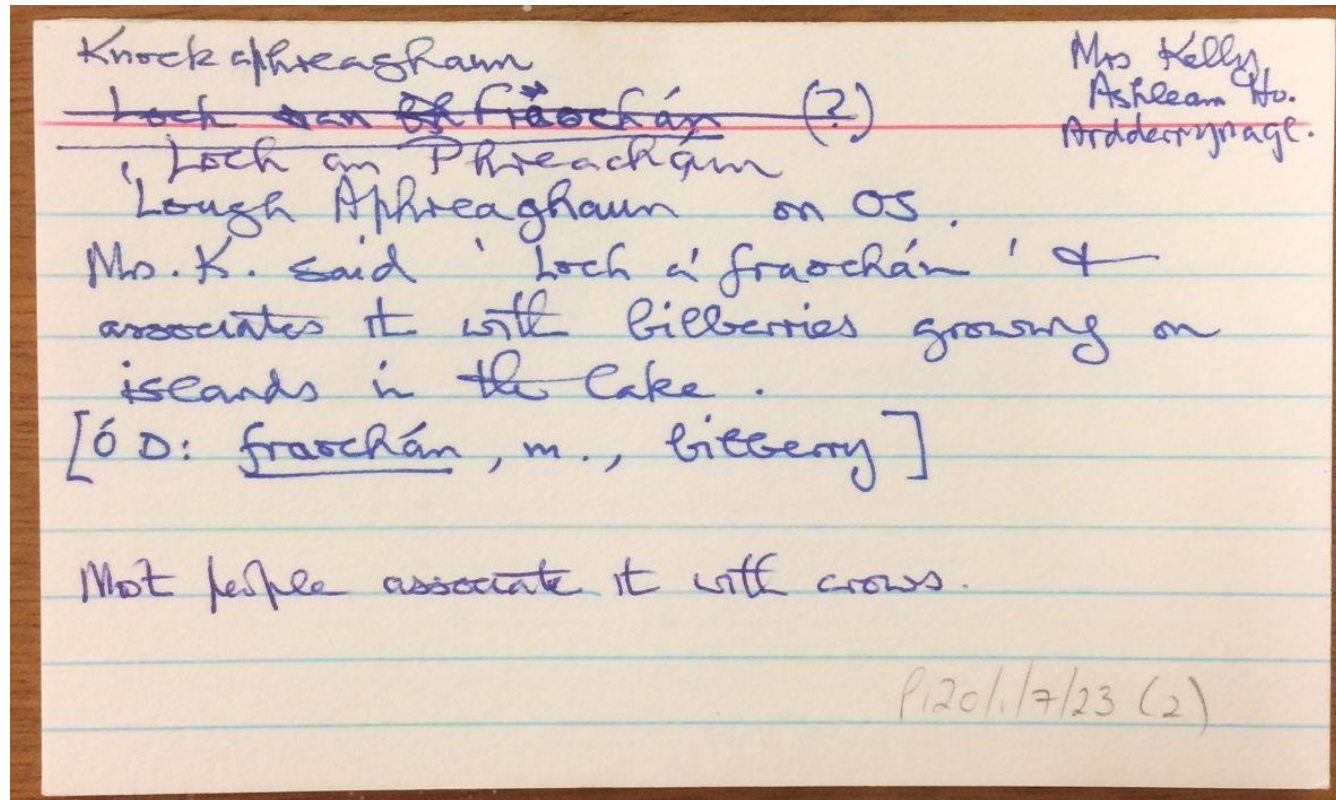 Knockaphreaghaun
Mrs Kelly,
Ashleam Ho.
Ardderrynagl.
Loch an fraochán (?)
Loch an Phreacháin
Lough Aphreaghaun on OS.
Mrs. K. said 'Loch a' fraochán' &
associates it with bilberries growing on
islands in the lake.
[Ó D: fraochán, m., bilberry]
Most people associate it with crows.
P120/1/7/23 (2)